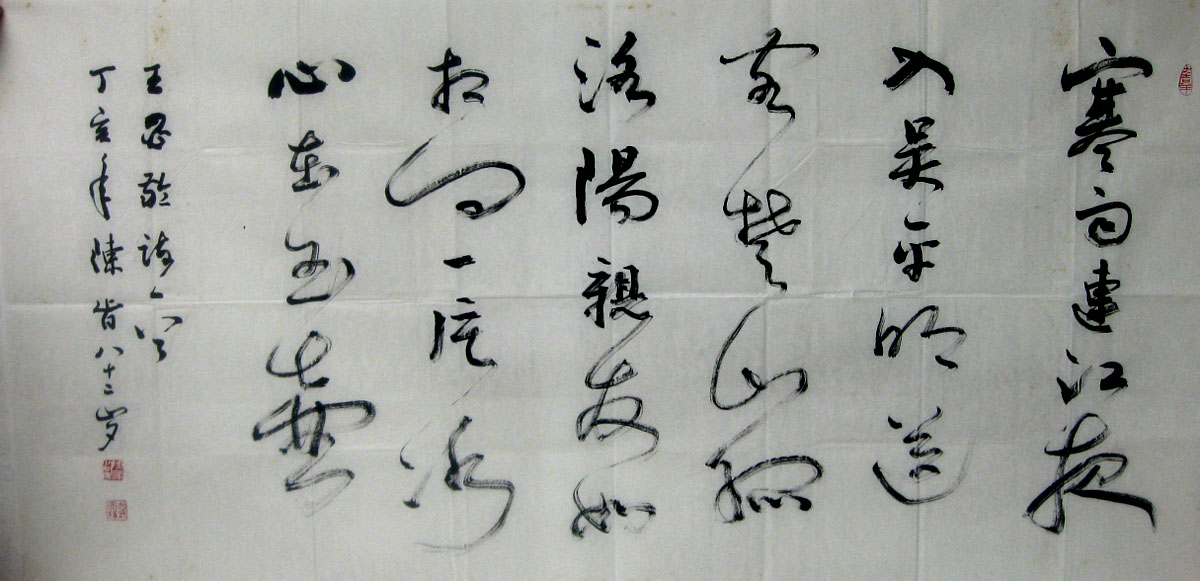 寒雨連江夜
入吳平明送
客楚山孤
洛陽親友如
相问一片冰
心在玉壺
王昌齡詩一首
丁亥年陳 八十二岁